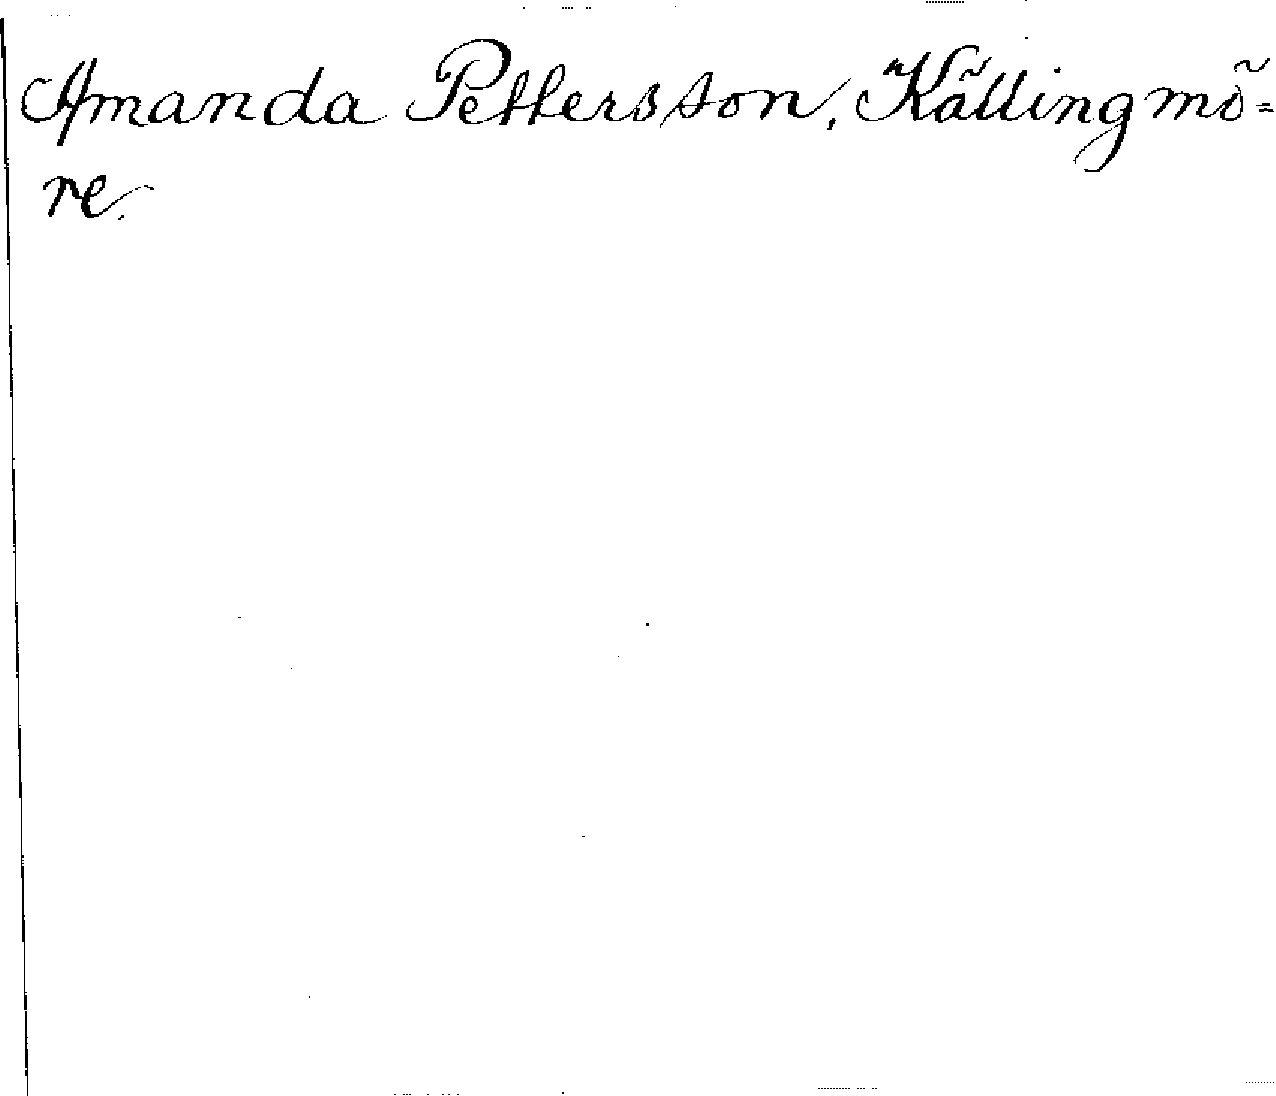 Amanda Pettersson, Källingmö=
re.